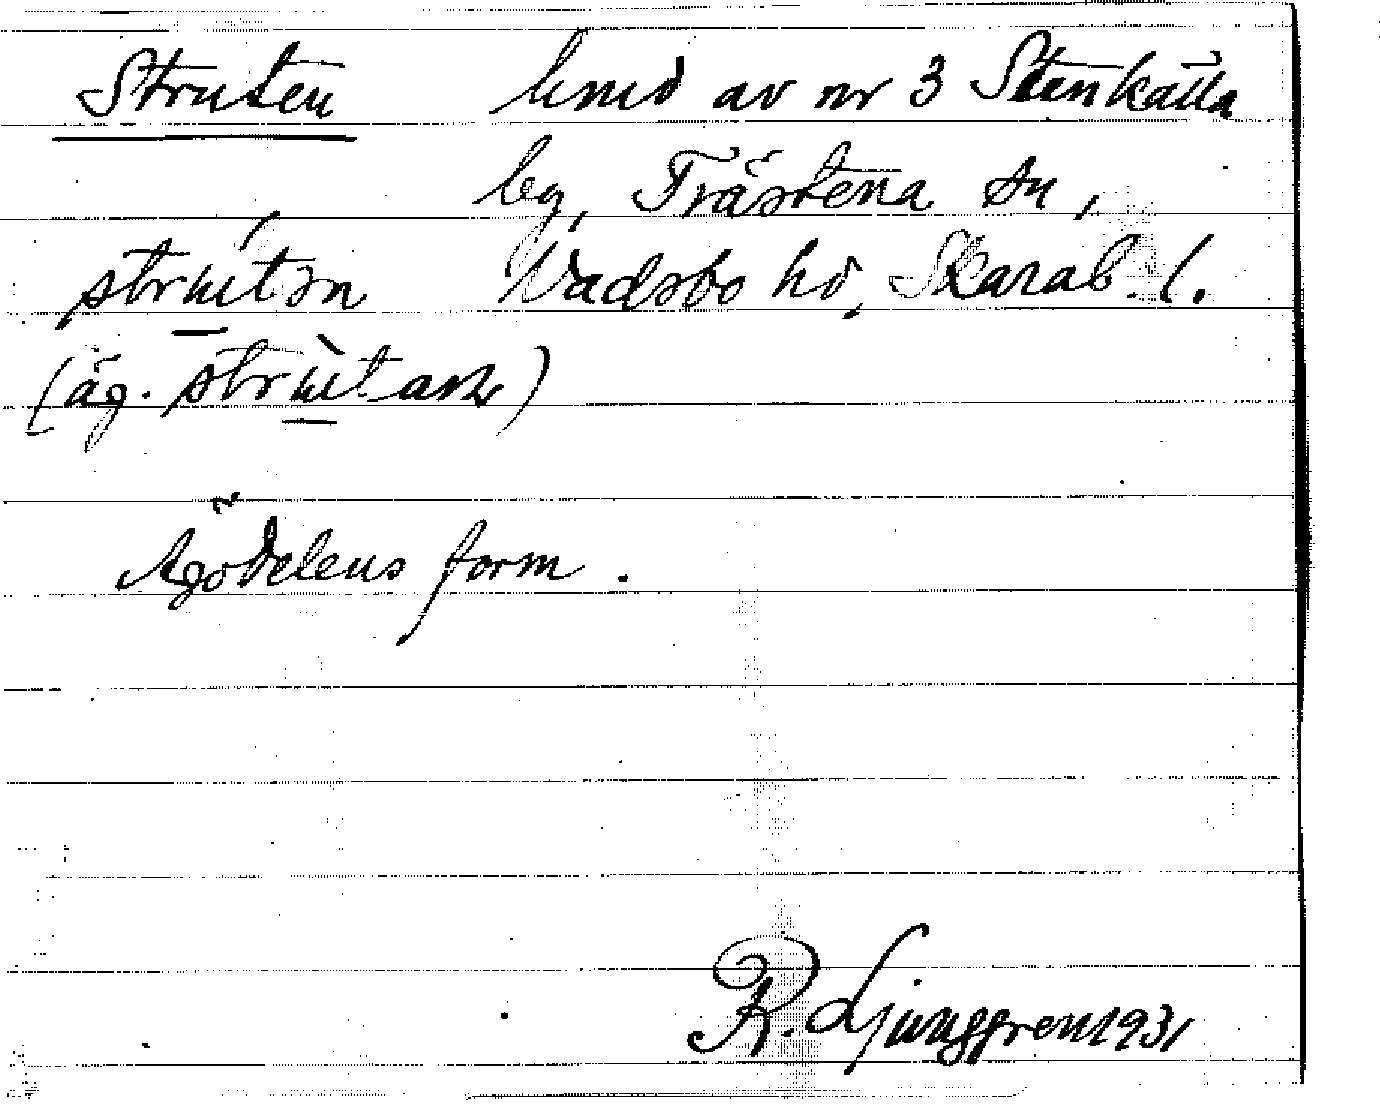 Struten hmd av nr 3 Stenkälla
by, Trästena sn,
strutən Vadsbo hd, Skarab. l.
(äg. strut asr)
Ägodelens form.
R. Ljunggren 1931